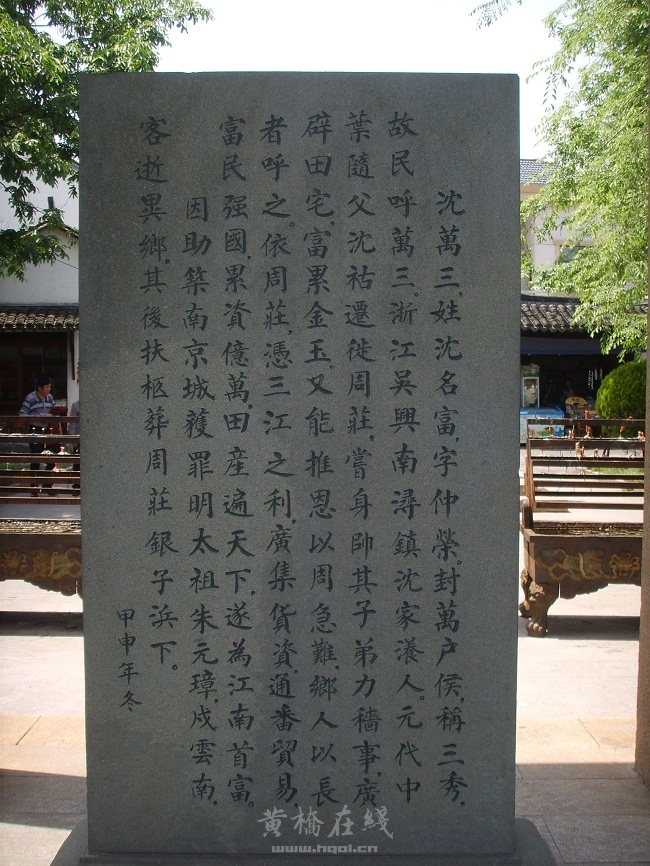 沈萬三，姓沈名富，字仲榮。封萬户侯，稱三秀，
故民呼萬三。浙江吴興南潯鎮沈家漾人。元代中
葉隨父沈祜遷徙周莊，嘗身帥其子弟力穡事，廣
辟田宅，富累金玉，又能推恩以周急難，鄉人以長
者呼之。依周莊，憑三江之利，廣集貨資，通番貿易
富民强國，累資億萬，田産遍天下，遂為江南首富。
因助築南京城獲罪明太祖朱元璋，戍雲南，
客逝異鄉，其後扶柩葬周莊銀子浜下。
甲申年冬
黄橋在线
www.hqol.cn